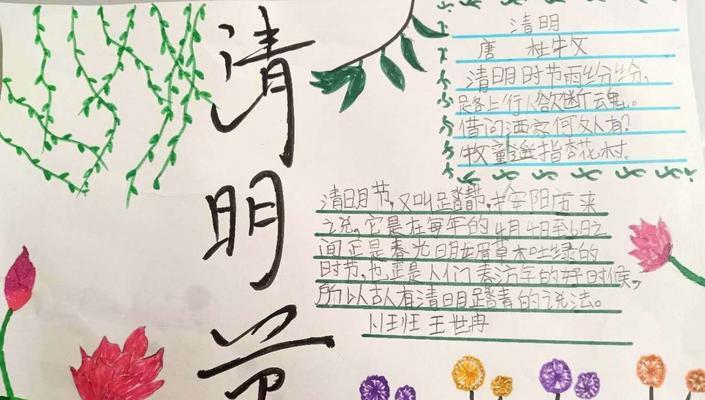 清明节
清明
唐 杜牧
清明时节雨纷纷,
路上行人欲断魂。
借问酒家何处有?
牧童遥指杏花村。
清明节,又叫踏青节,
之说,它是在每年的4月4日至6日之
间正是春光明媚草木吐绿的
时节,也正是人们春游的好时候,
所以古人有清明踏青的说法。
王世冉